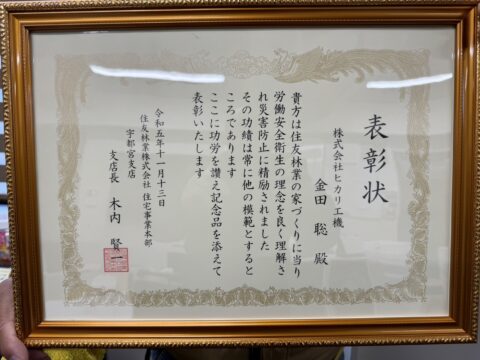 表彰状
株式会社ヒカリ工機
金田 聡 殿
貴方は住友林業の家づくりに当り
労働安全衛生の理念を良く理解さ
れ災害防止に精励されました
その功績は常に他の模範とすると
ころであります
ここに功労を讃え記念品を添えて
表彰いたします
令和五年十一月十三日
住友林業株式会社 住宅事業本部
宇都宮支店
支店長 木内 賢一